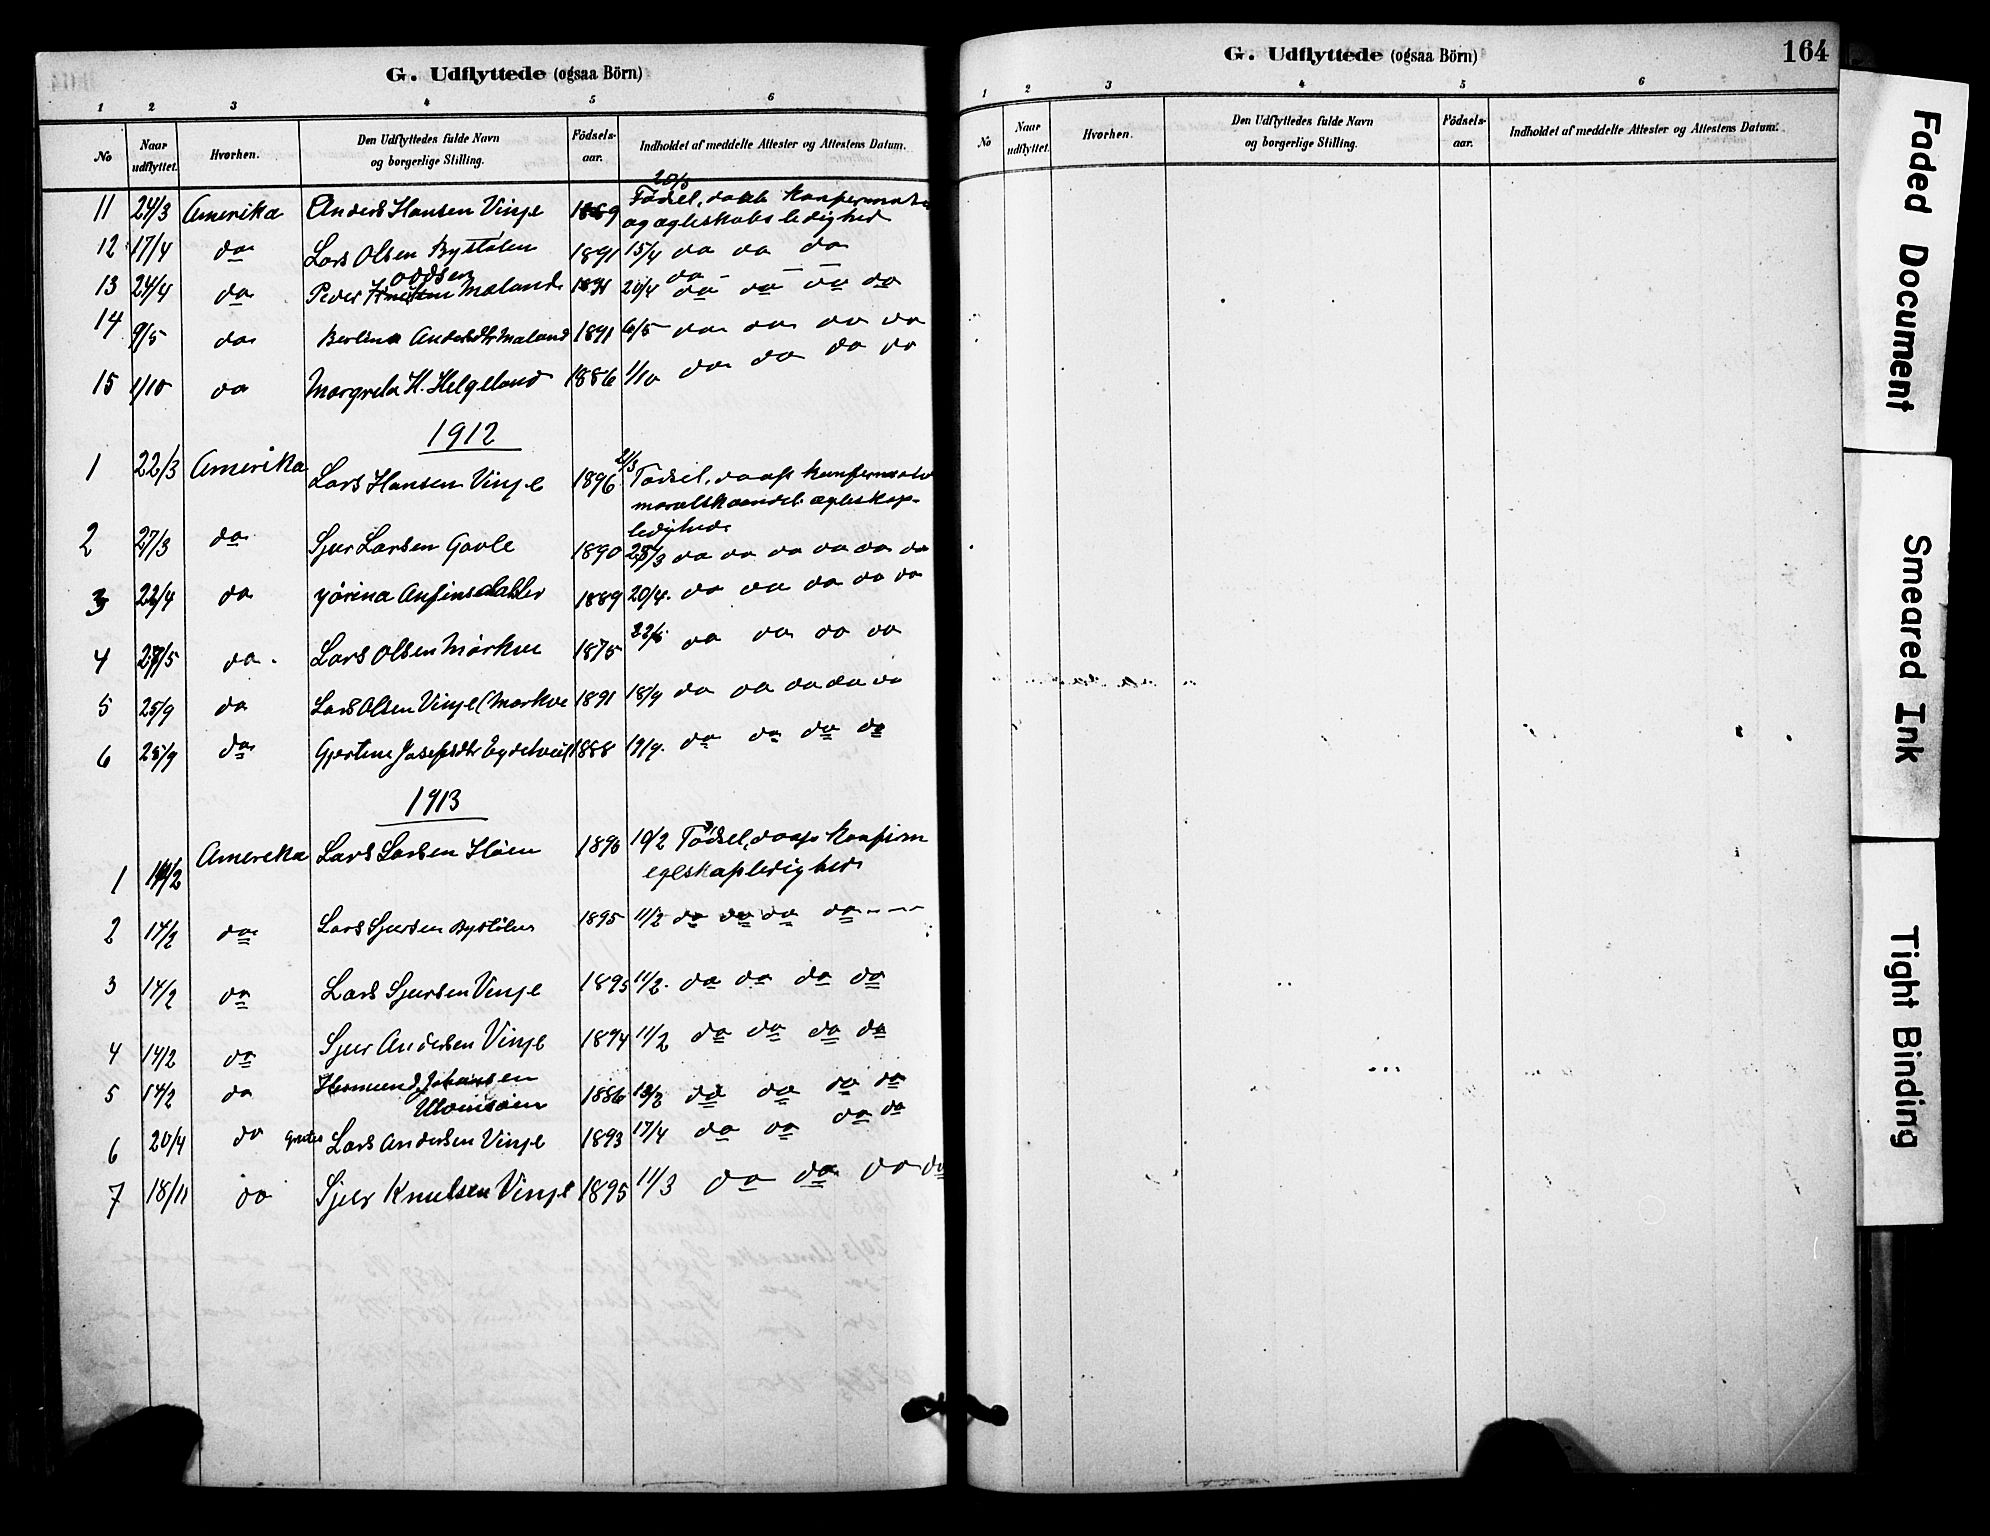 G. Udflyttede (ogsaa Börn)
1 2 3 4 5 6
No Naar udflyttet. Hvorhen. Den Udflyttedes fulde Navn og borgerlige Stilling. Födsels-aar. Indholdet af meddelte Attester og Attestens Datum.
20/3
11 24/3 Amerika Anders Hansen Vinje 1889 Fødsel, daab konfermation
og ægteskabsledighed
12 17/4 do Lars Olsen Bystølen 1891 15/4 do do do
13 24/4 do Peder Oddsen Mæland 1891 20/4 do do do do
14 9/5 do Berlina Andersdtr Mæland 1891 6/5 do do do do
15 1/10 do Margreta H. Helgeland 1886 1/10 do do do do
1912
1 22/3 Amerika Lars Hansen Vinje 1896 21/3 Fødsel, daab konfermation
moralsk vandel ægteskap-
ledighed
2 27/3 do Sjur Larsen Gavle 1890 25/3 do do do do do do
3 22/4 do Jørina Anfinsdatter 1889 20/4. do do do do do
4 27/5 do. Lars Olsen Mørkve 1875 22/5. do do do do
5 25/9 do Lars Olsen Vinje (Mørkve 1891 18/9 do do do do do
6 25/9 do Gjertine Josefsdtr 1888 19/9. do do do do
1913
1 14/2 Amerika Lars Larsen Høen 1896 10/2 Fødsel, daap konfirm
egtskapledighed
2 14/2 do Lars Sjursen Bystølen 1895 11/2 do do do do
3 14/2 do Lars Sjursen Vinje 1895 11/2. do do do do
4 14/2 do Sjur Andersen Vinje 1894 11/2 do do do do
5 14/2 do Johansen 1886 13/2 do do do do
6 20/4 do Lars Andersen Vinje 1893 17/4 do do do do
7 18/11 do Sjur Knutsen Vinje 1895 11/3 do do do do
G. Udflyttede (ogsaa Börn) 164
1 2 3 4 5 6
No Naar udflyttet. Hvorhen. Den Udflyttedes fulde Navn og borgerlige Stilling. Födsels-aar. Indholdet af meddelte Attester og Attestens Datum.
Faded Document
Smeared Ink
Tight Binding